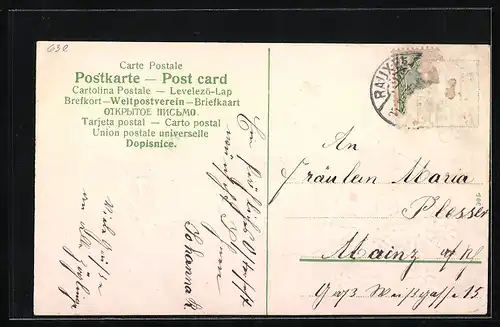 632
Carte Postale
Postkarte — Post card
Cartolina Postale — Levelező-Lap
Brefkort—Weltpostverein—Briefkaart
ОТКРЫТОЕ ПИСЬМО.
Tarjeta postal — Carto postal
Union postale universelle
Dopisnice.
RAUX
Ein
wünscht Ihnen
Johanna R.
Viele Grüsse
An
Fräulein Maria
Plesser
Mainz a/R
Gaß Weißgasse 15.